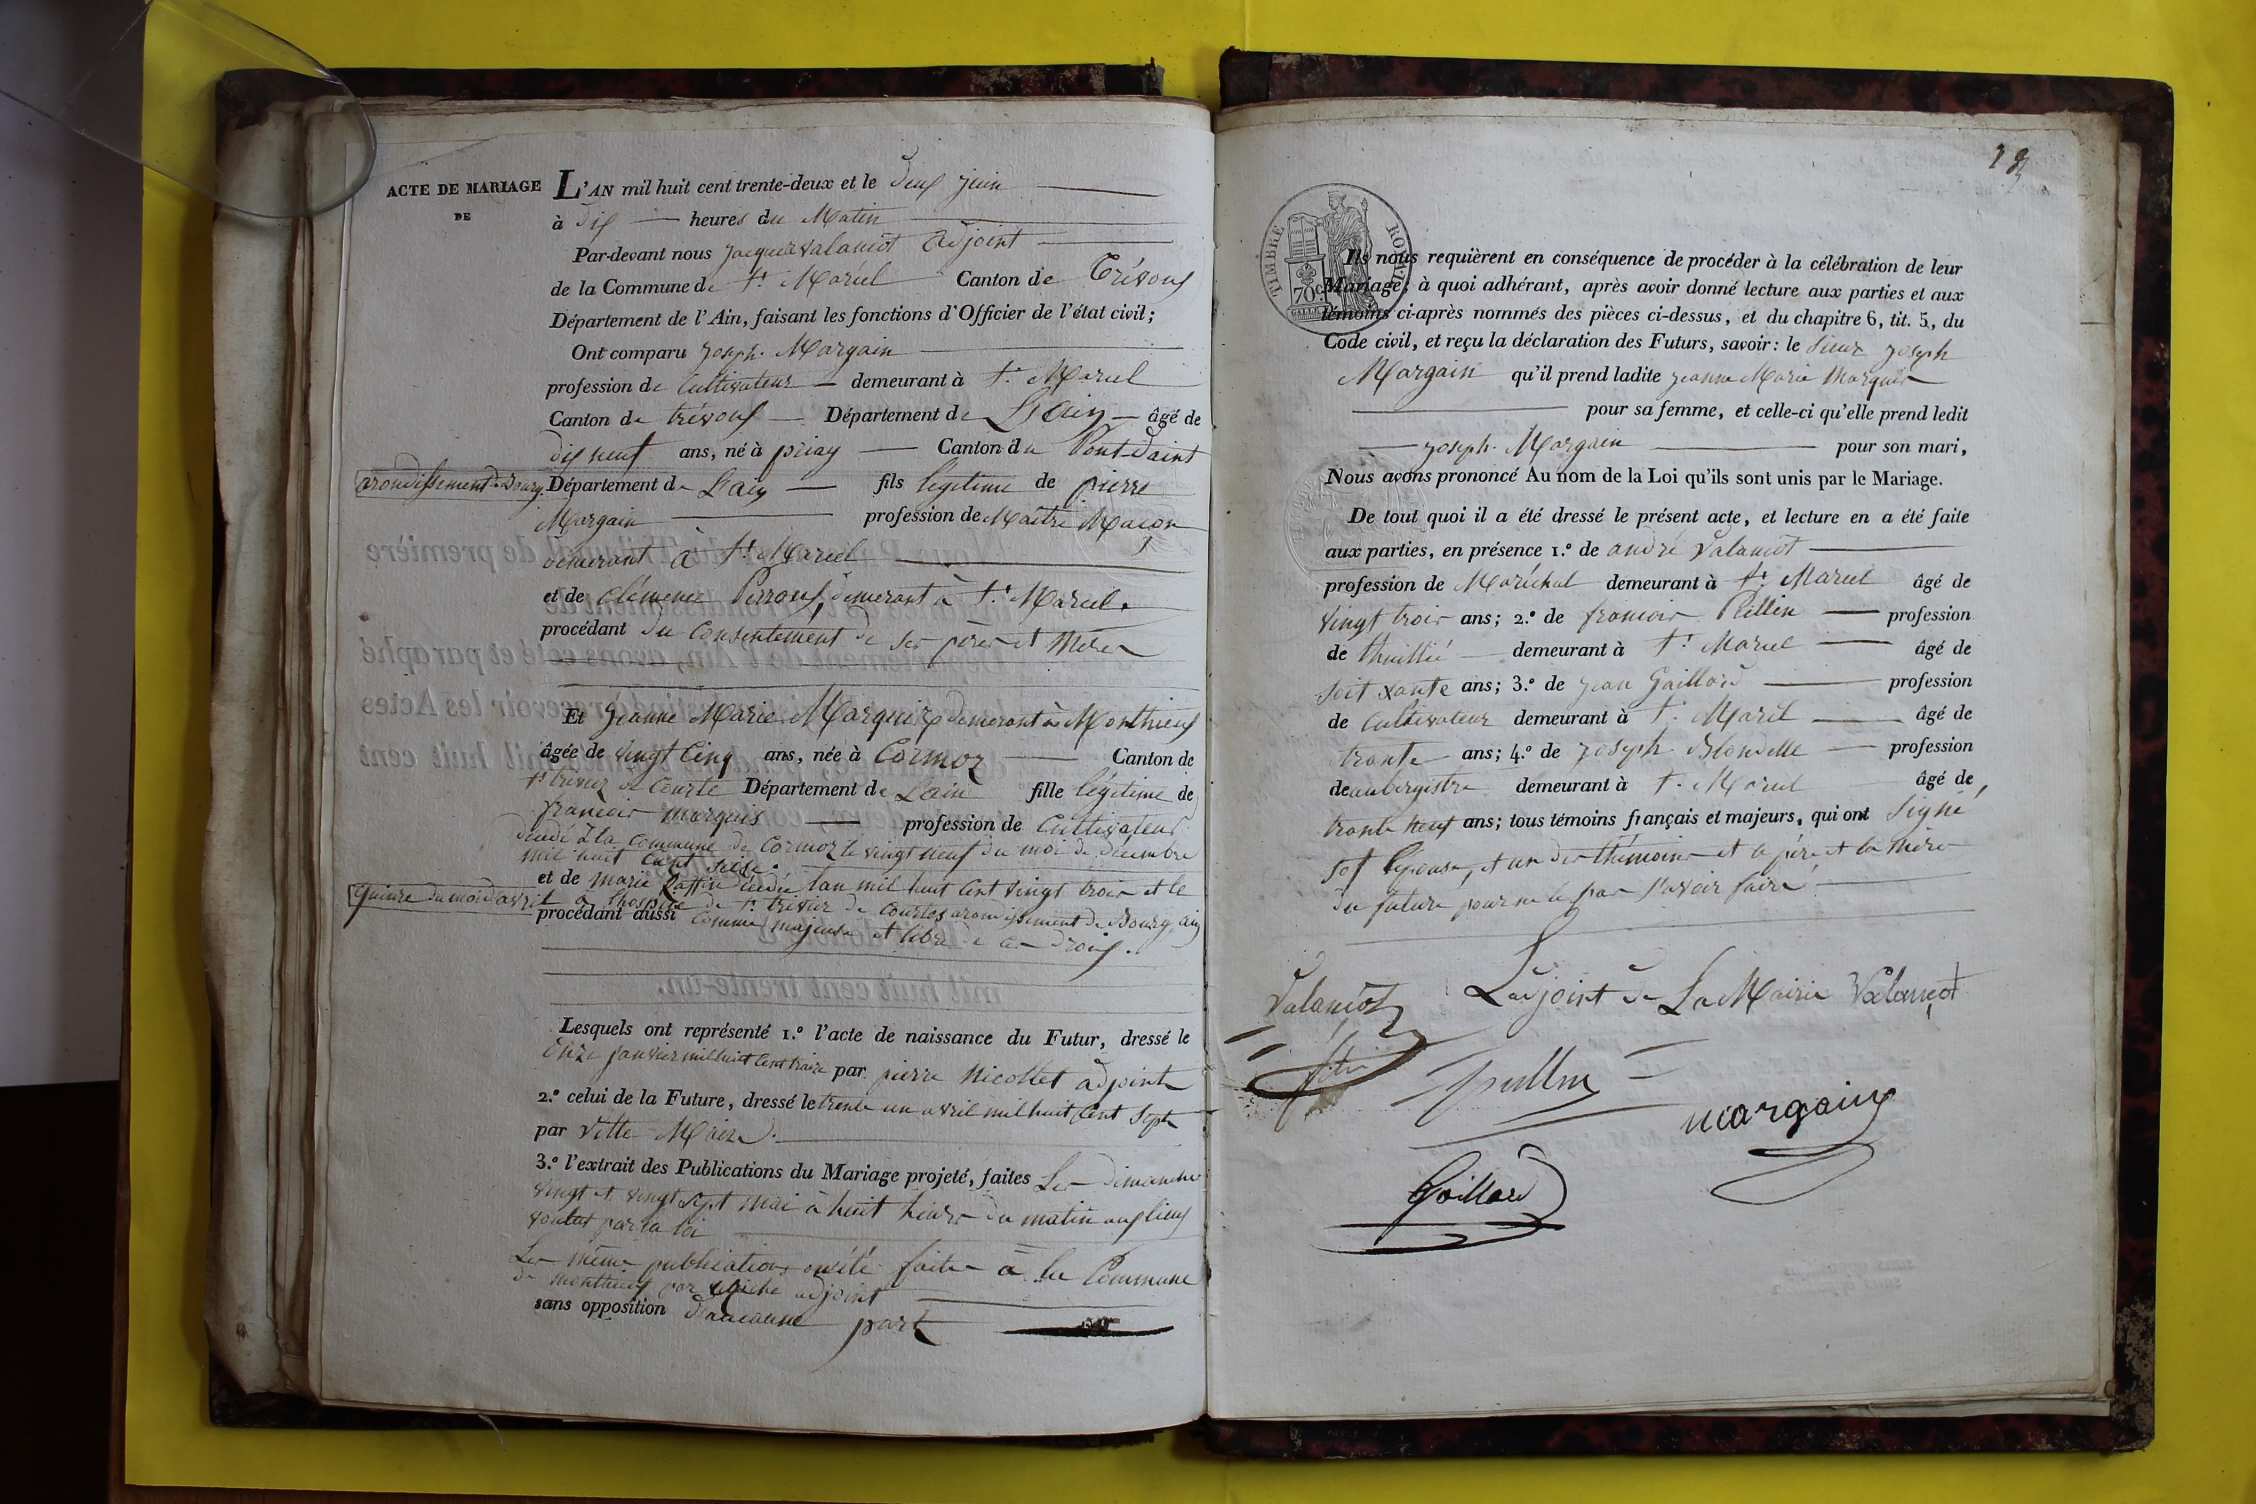 ACTE DE MARIAGE
DE
L'AN mil huit cent trente-deux et le deux juin
à dix heures du Matin
Par-devant nous jacques valancot adjoint
de la Commune de St Marcel Canton de Trévoux
Département de l'Ain, faisant les fonctions d'Officier de l'état civil;
Ont comparu joseph Margain
profession de Cultivateur demeurant à St Marcel
Canton de trévoux Département de L'ain âgé de
dix neuf ans, né à priay Canton du Pont-daint
arondissement de Bourg Département de L'ain fils legitime de pierre
Margain profession de Maitre Macon
demerant à St Marcel
et de clémence Perroux, demerant à St Marcel.
procédant du Consentement de ses père et Mere
Et jeanne Marie Marquis demerant à Monthieux
âgée de vingt Cinq ans, née à Cormoz Canton de
St trivier de Courte Département de L'ain fille légitime de
francois marquis profession de Cultivateur
décedé à la Commune de Cormoz le vingt neuf du moi de décembre
mil huit Cent seize.
et de marie décédée lan mil huit Cent vingt trois et le
quinze du moi davril a lhospice de St trivier de Courtes arondissement de Bourg, ain
procédant aussi Comme majeure et libre de ces droits.
Lesquels ont représenté 1.º l'acte de naissance du Futur, dressé le
onze janvier mil huit Cent traize par pierre Nicollet adjoint
2.º celui de la Future, dressé le trente un avril mil huit Cent Sept
par Maire.
3.º l'extrait des Publications du Mariage projeté, faites Les dimanches
vingt et vingt sept mai à huit heures du matin aux lieux
voulus par la loi
Les même publications onété faites à la Commune
de monthieux par adjoint
sans opposition daucaune part
TIMBRE ROYAL
70c
Ils nous requièrent en conséquence de procéder à la célébration de leur
Mariage; à quoi adhérant, après avoir donné lecture aux parties et aux
témoins ci-après nommés des pièces ci-dessus, et du chapitre 6, tit. 5, du
Code civil, et reçu la déclaration des Futurs, savoir: le sieur joseph
Margain qu'il prend ladite jeanne Marie Marquis
pour sa femme, et celle-ci qu'elle prend ledit
joseph Margain pour son mari,
Nous avons prononcé Au nom de la Loi qu'ils sont unis par le Mariage.
De tout quoi il a été dressé le présent acte, et lecture en a été faite
aux parties, en présence 1.º de andré valancot
profession de Maréchal demeurant à St Marcel âgé de
vingt trois ans; 2.º de francois Pillin profession
de thuillié demeurant à St Marcel âgé de
soit xante ans; 3.º de jean Gaillard profession
de Cultivateur demeurant à St Marcel âgé de
trante ans; 4.º de joseph Blondelle profession
de aubergistre demeurant à St Marcel âgé de
trante neuf ans; tous témoins français et majeurs, qui ont signé,
sof lepouse, et un des thémoins et a père et la mère
du future pour ne le pas savoir faire
Valancot Ladjoint de La Mairie Valancot
pillin
margain
Gaillard